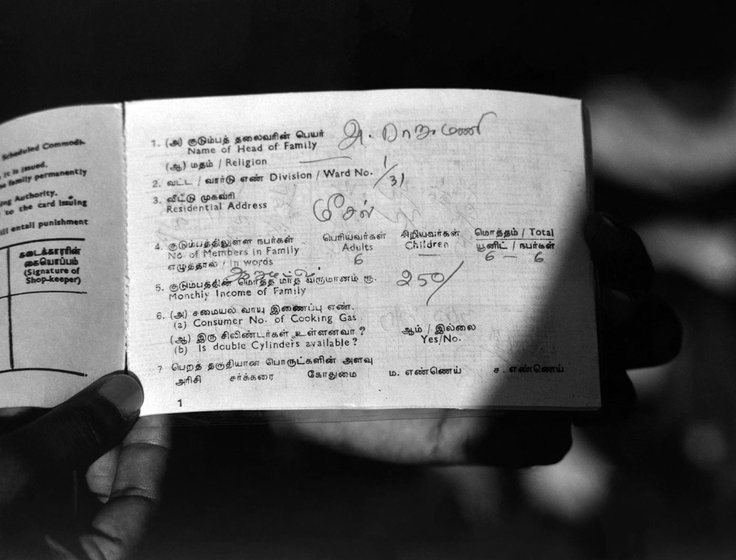 Scheduled Commodi-
it is issued.
e family permanently
ing Authority.
to the card issuing
ill entail punishment
கடைக்காரரின்
கையொப்பம்
(Signature of
Shop-keeper)
1. (அ) குடும்பத் தலைவரின் பெயர்
Name of Head of Family
(ஆ) மதம் / Religion
2. வட்ட / வார்டு எண் Division / Ward No. 1/31
3. வீட்டு முகவரி
Residential Address
4. குடும்பத்திலுள்ள நபர்கள் பெரியவர்கள் சிறியவர்கள் மொத்தம் / Total
No. of Members in Family Adults Children யூனிட் / நபர்கள்
எழுத்தால் / in words 6 6 — 6
5. குடும்பத்தின் மொத்த மாத வருமானம் ரூ. 250/
Monthly Income of Family
6. (அ) சமையல் வாயு இணைப்பு எண்.
(a) Consumer No. of Cooking Gas
(ஆ) இரு சிலிண்டர்கள் உள்ளனவா ? ஆம் / இல்லை
(b) Is double Cylinders available ? Yes/No.
7 பெறத் தகுதியான பொருட்களின் அளவு
அரிசி சர்க்கரை கோதுமை ம. எண்ணெய் ச. எண்ணெய்
1